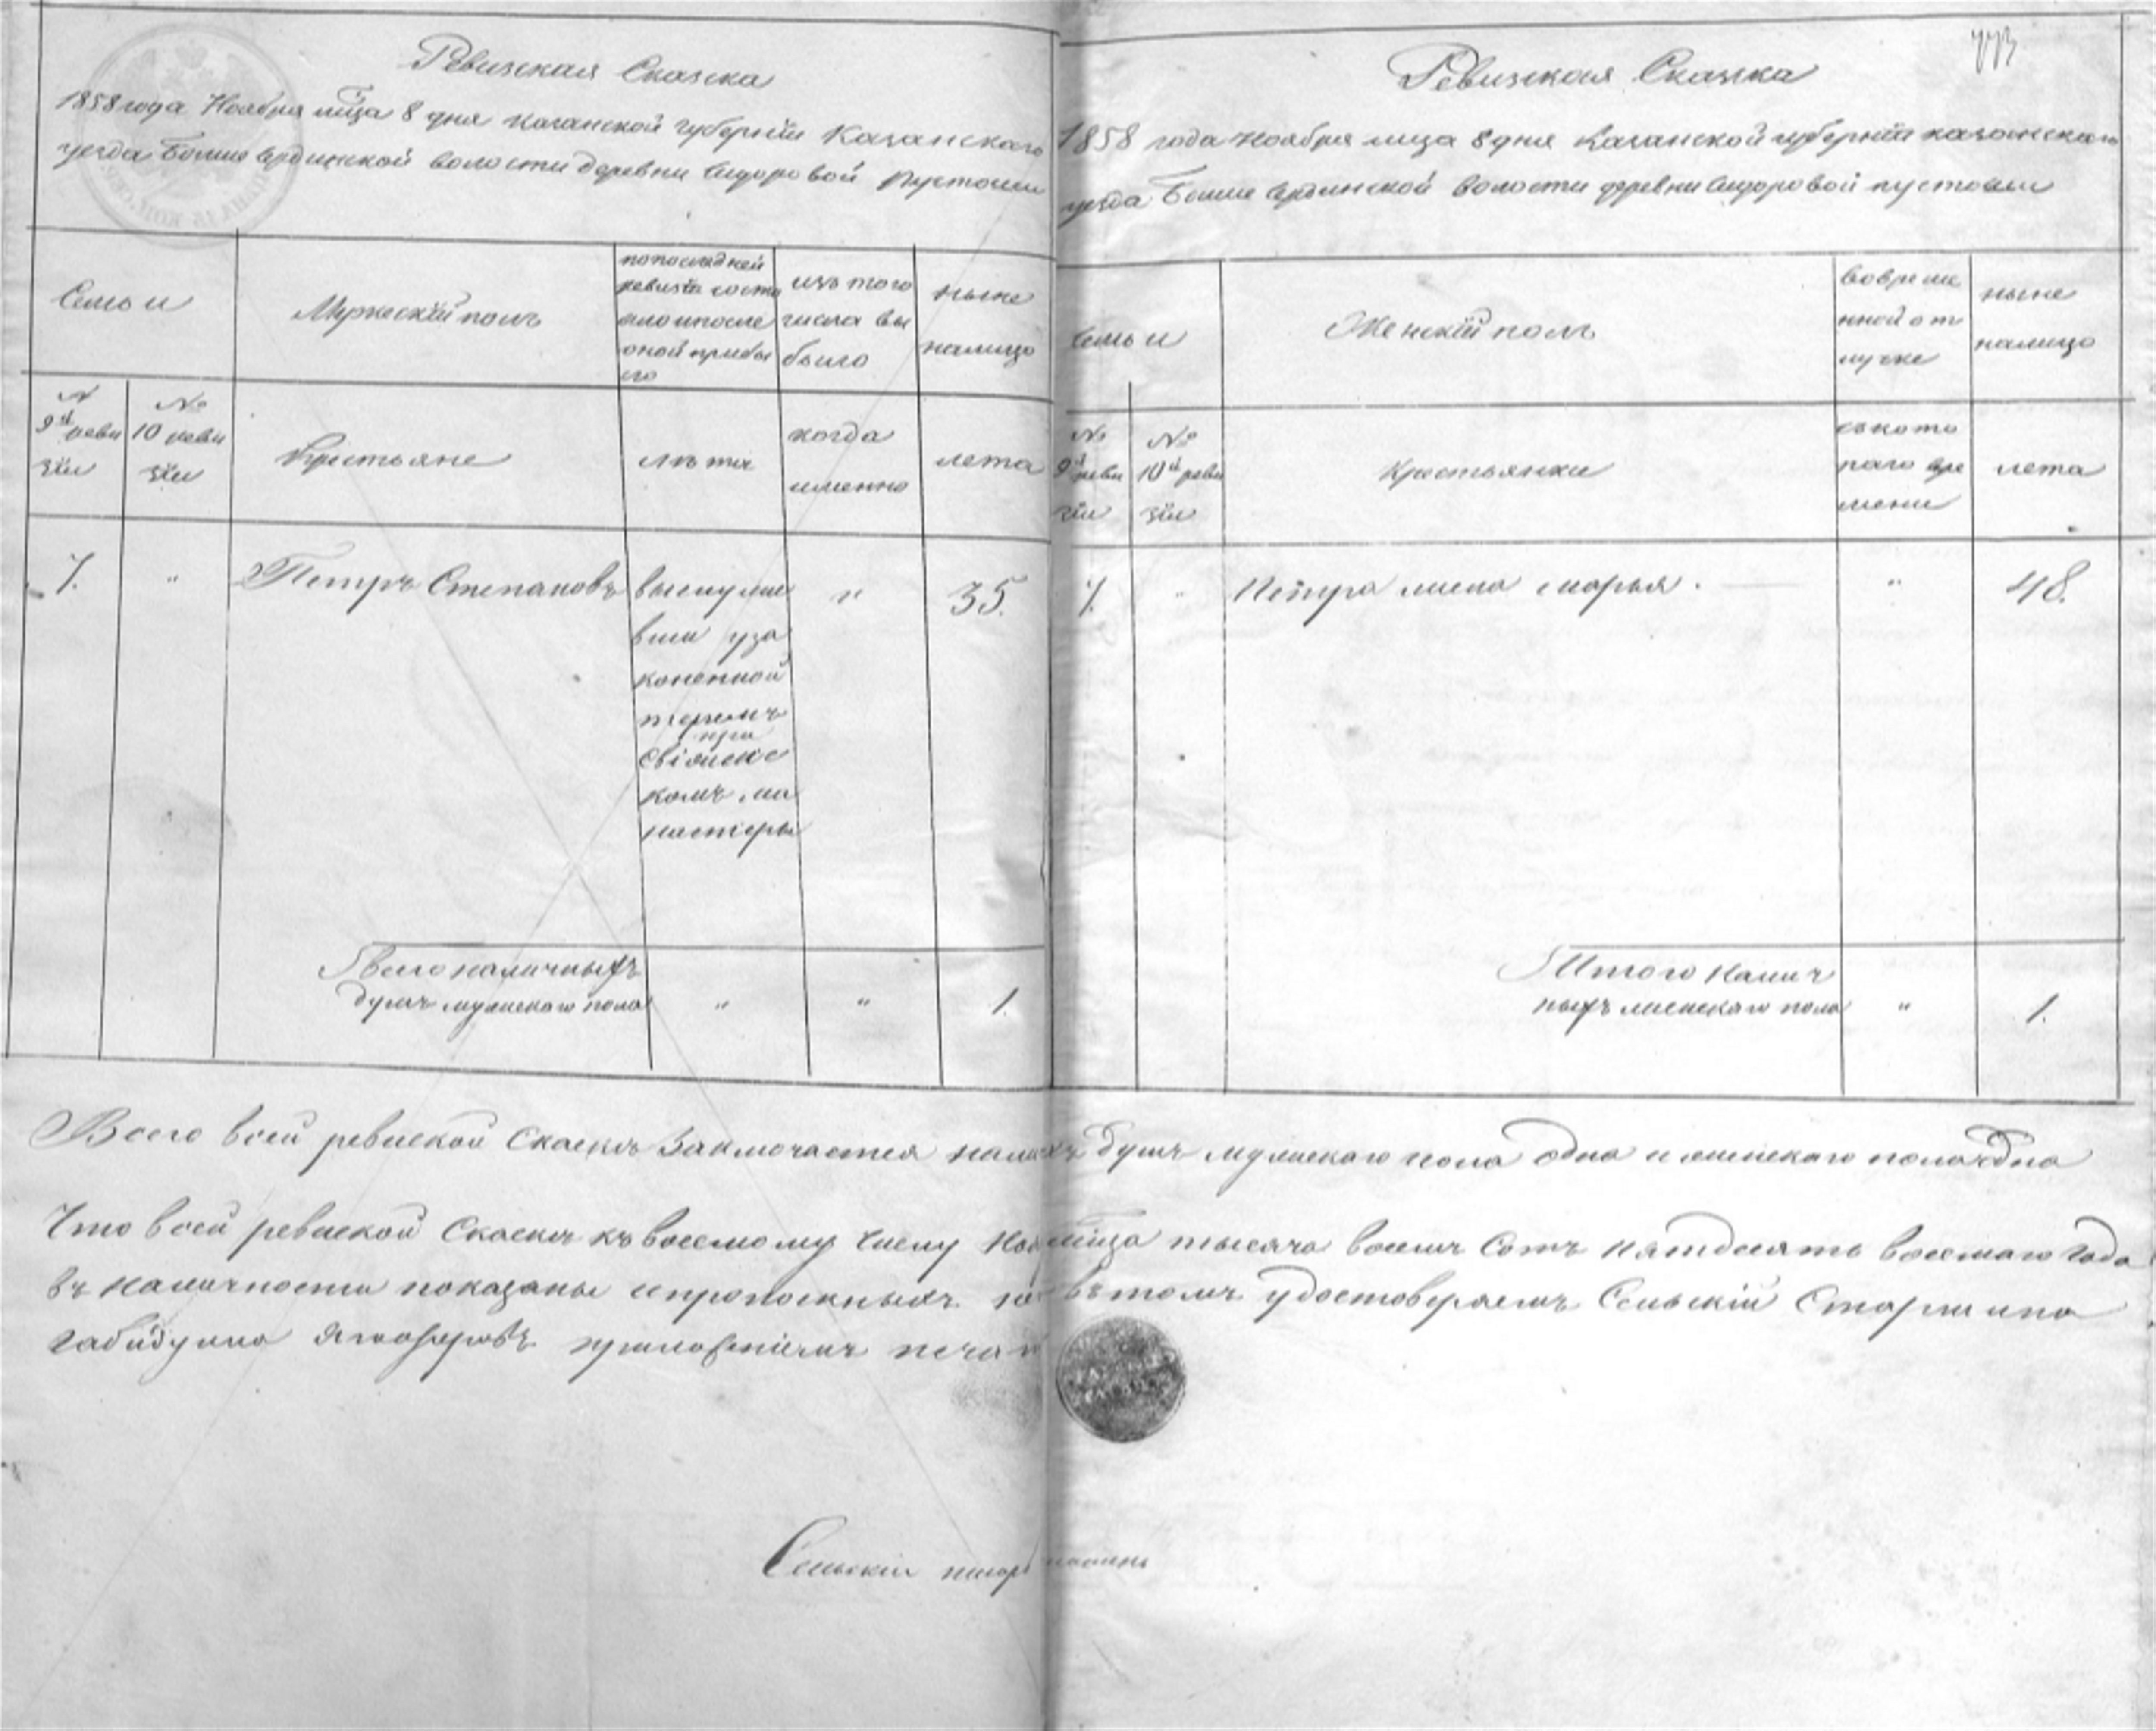 Ревизская Сказка
1858 года Ноября м̃ца 8 дня Казанской губерніи Казанского
уезда Больше Сердинской волости деревни Сидоровой Пустоши
Семьи
Мужескій полъ
попоследней
ревизіи состо
ялоипосле
оной прибы
ло
изъ того
числа вы
было
ныне
налицо
№
9й реви
зіи
№
10 реви
зіи
Крестьяне
лѣта
когда
именно
лета
7.
"
Петръ Степановъ
выслужи
вши уза
коненной
терминъ
при
Свіяжс
комъ мо
настыры
"
35.
Всего наличныхъ
душъ мужскаго пола
"
"
1.
Ревизская Сказка
773
1858 года Ноября м̃ца 8 дня Казанской губерніи казанскаго
уезда Больше Сердинской волости деревни Сидоровой пустоши
Семьи
Женскій полъ
вовреме
нной от
лучке
ныне
налицо
№
9й реви
зіи
№
10й реви
зіи
Крестьянки
съ кото
раго вре
мени
лета
7.
"
Петра жена Марья.
"
48.
Итого Налич
ныхъ женскаго пола
"
1.
Всего всей ревиской Скаскѣ Заключается душъ мужскаго пола одна и женскаго пола одна
Что всей ревиской Скаскѣ къ восемому числу тысяча восемь Сотъ пятдесять восемаго Года
въ наличности показаны и прописныхъ въ томъ удостоверяемъ Сельскій Старшина
Габидулла приложеніемъ
Сельскій писарь